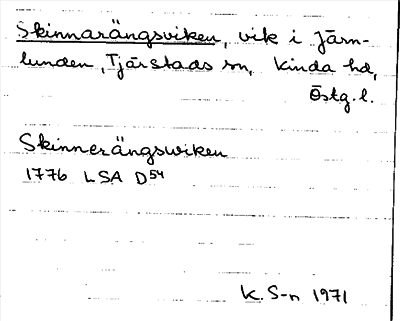 Skinnarängsviken, vik i Järn-
lunden, Tjärstads sn, Kinda hd,
Östg.l.
Skinnerängswiken
1776 LSA D54
K. S-n 1971